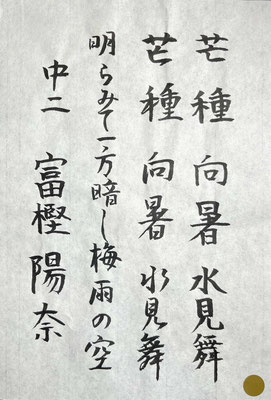 芒種 向暑 水見舞
芒種 向暑 水見舞
明らみて一方暗し梅雨の空
中二 富樫 陽奈